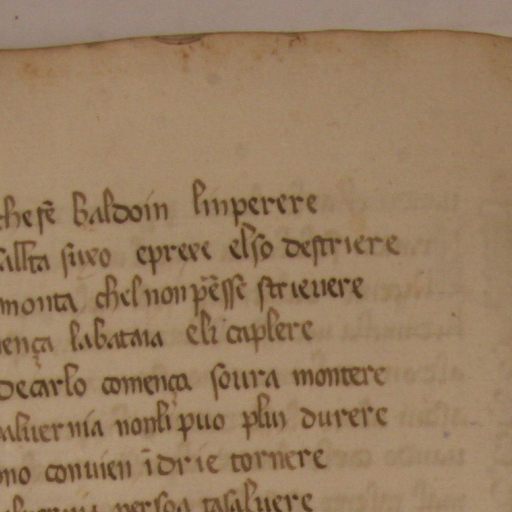 che fē baldoin linperere
fuxo eprexe elso destriere
monta chel non pēsse strieuere
ença labataia eli caplere
decarlo comença soura montere
aluernia nonli puo plui durere
no conuien īdrie tornere
persoa